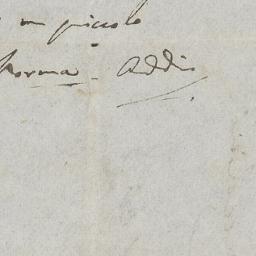 un piccolo
Norma. Addio